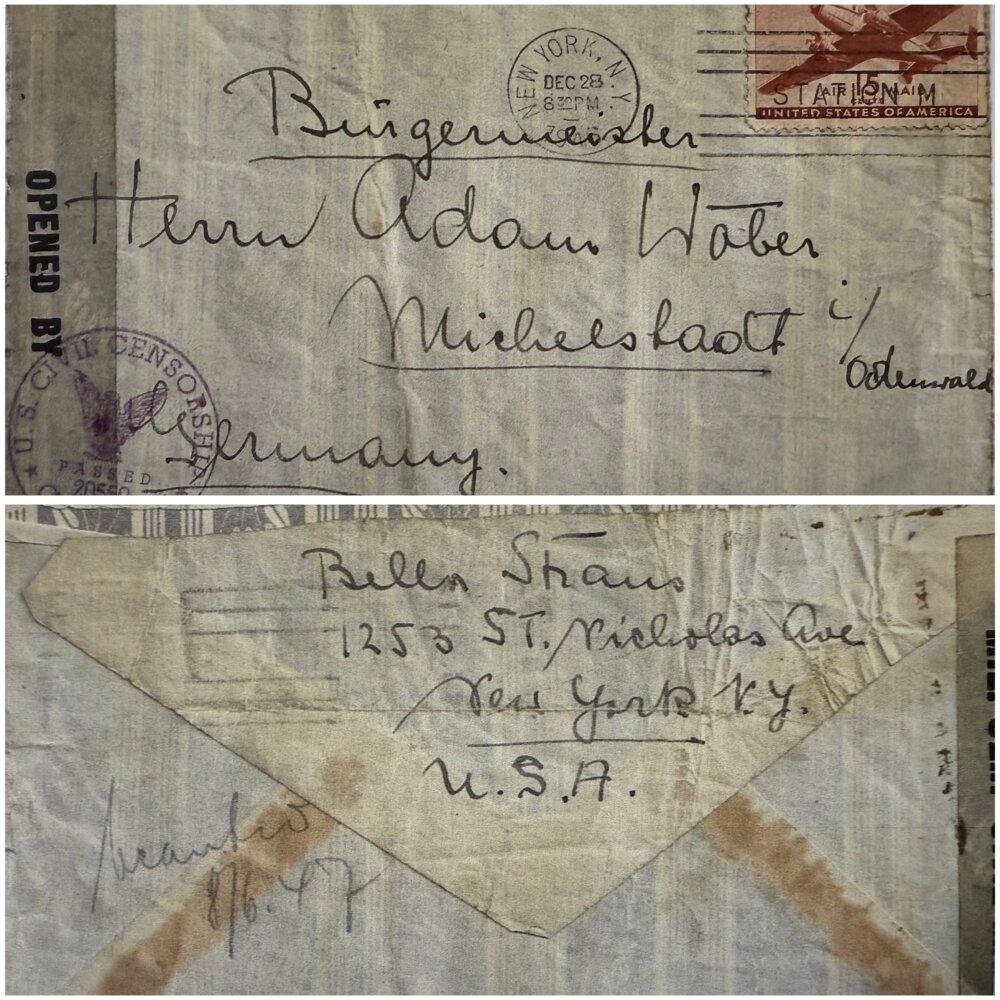 NEW YORK, N.Y.
DEC 28
8 30 PM
STATION M
AIR 15 MAIL
CENTS
UNITED STATES OF AMERICA
Bürgermeister
Herrn Adam Wöber
Michelstadt i/
Odenwald
Germany.
OPENED BY
U.S. CIVIL CENSORSHIP
PASSED
Bella Straus
1253 ST. Nicholas Ave
New York N.Y.
U.S.A.
8/6. 47